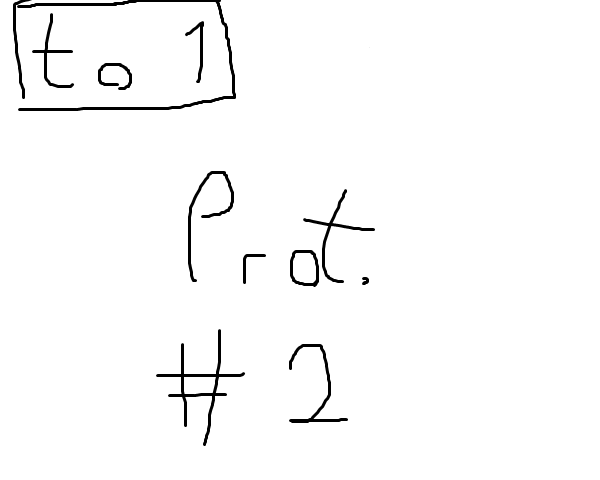 to 1
Prot.
# 2